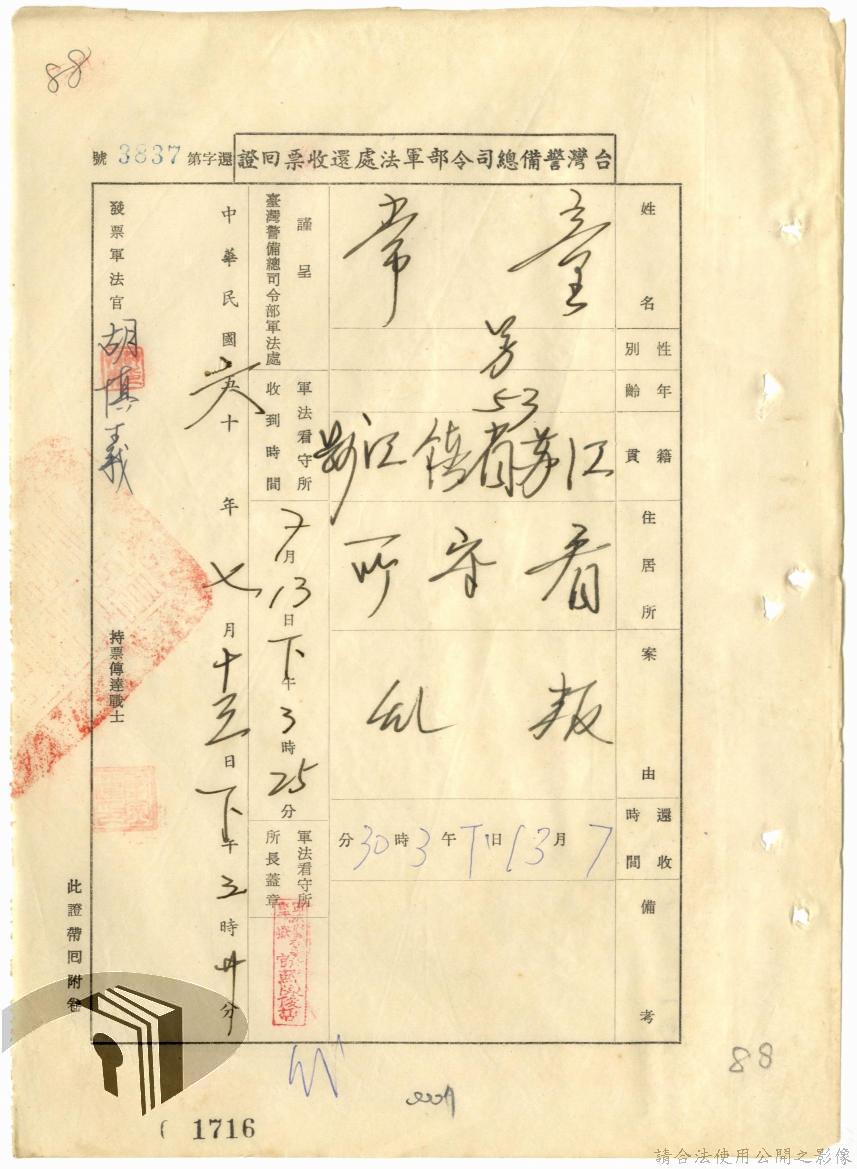 88
台灣警備總司令部軍法處還收票回證
還字第3837號
姓名
童常
性別
男
年齡
53
籍貫
江蘇省鎮江縣
住居所
看守所
案由
叛乱
還收時間
7月13日下午3時30分
備考
謹呈
臺灣警備總司令部軍法處
軍法看守所
收到時間
7月13日下午3時25分
軍法看守所
所長蓋章
中華民國五十六年七月十三日下午三時廿分
發票軍法官
胡
義
持票傳達戰士
此證帶回附卷
88
1716
請合法使用公開之影像